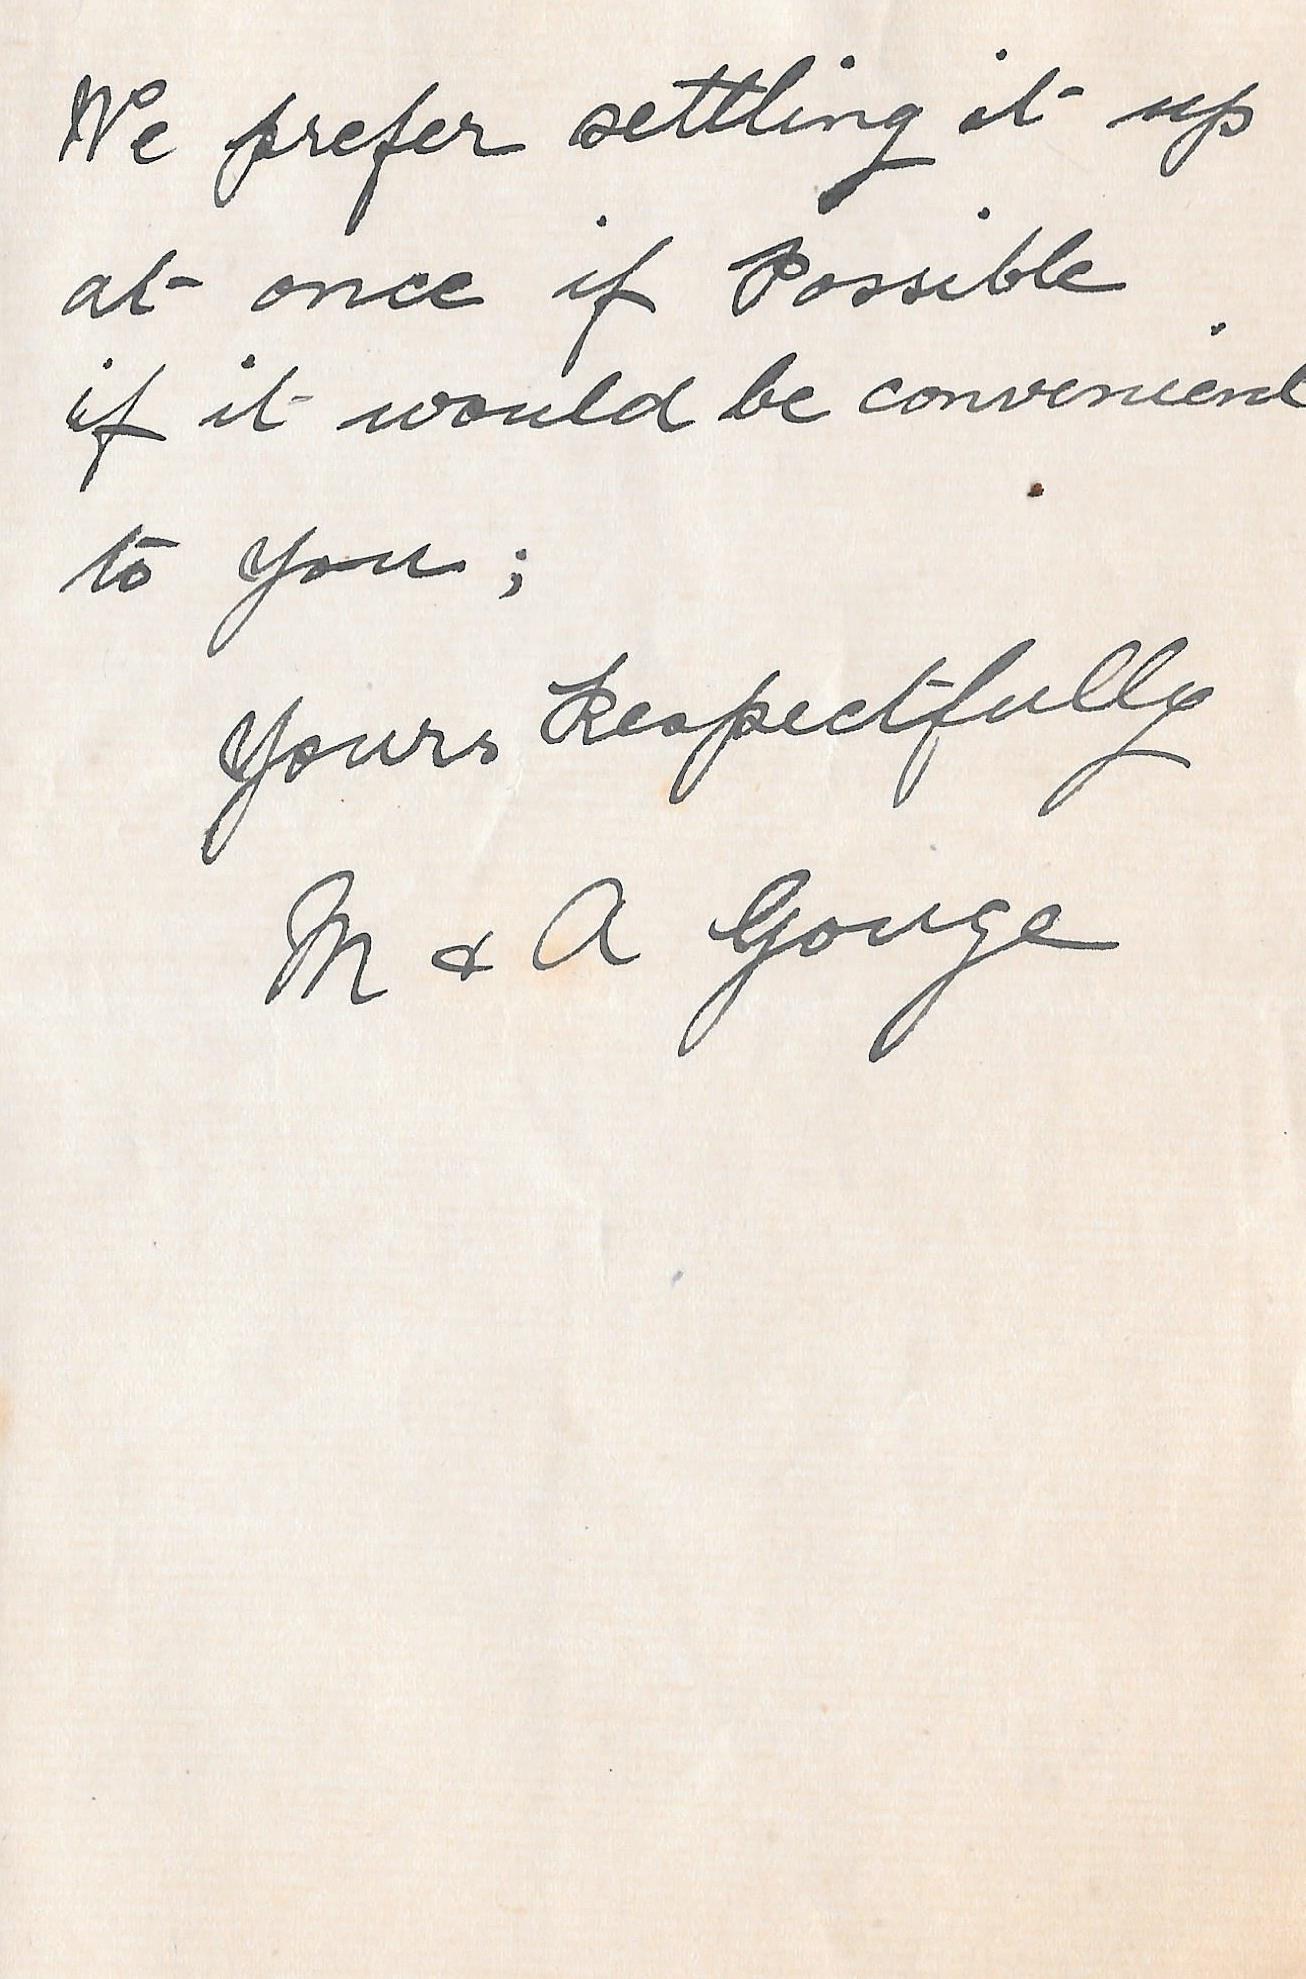 We prefer settling it up
at once if Possible
if it would be convenient
to you ;
Yours Respectfully
M & A Gouge